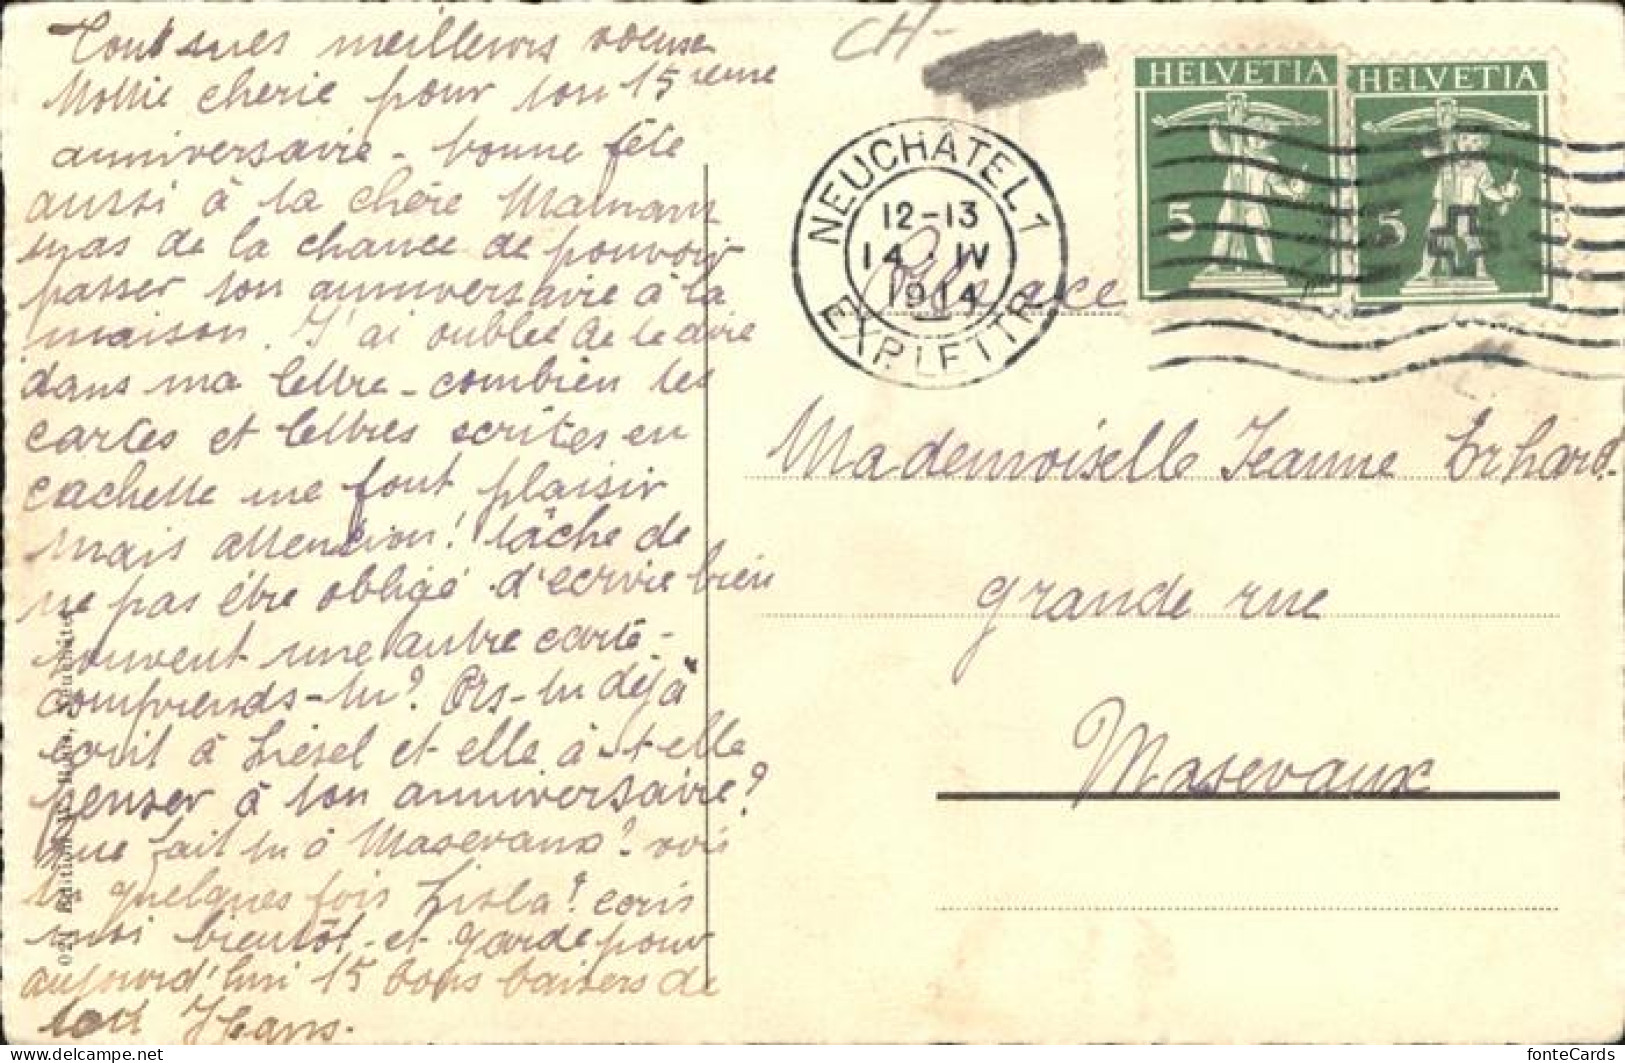 Tous mes meilleurs voeux
chérie pour ton 15 ième
anniversaire - bonne fête
aussi à ta chère Maman
mas de la chance de pouvoir
passer ton anniversaire à la
maison. J'ai oublié de te dire
dans ma lettre - combien tes
cartes et lettres écrites en
cachette me font plaisir
mais attention! tâche de
ne pas être obligé d'ecrire bien
souvent une autre carte -
comprends-tu? As-tu déjà
écrit à Liesel et elle à-t-elle
penser à ton anniversaire?
que fait tu à Masevaux? vois
tu quelques fois Lisla? ecris
moi bientôt - et garde pour
aujourd'hui 15 bons baisers de
ton Hans.
CH-
HELVETIA
5
HELVETIA
5
NEUCHATEL 1
12-13
14·IV
1914
EXP. LETTR.
Alsace
Mademoiselle Jeanne Erhard.
grande rue
Masevaux
021 Edition W. Neuchâtel
fonteCards